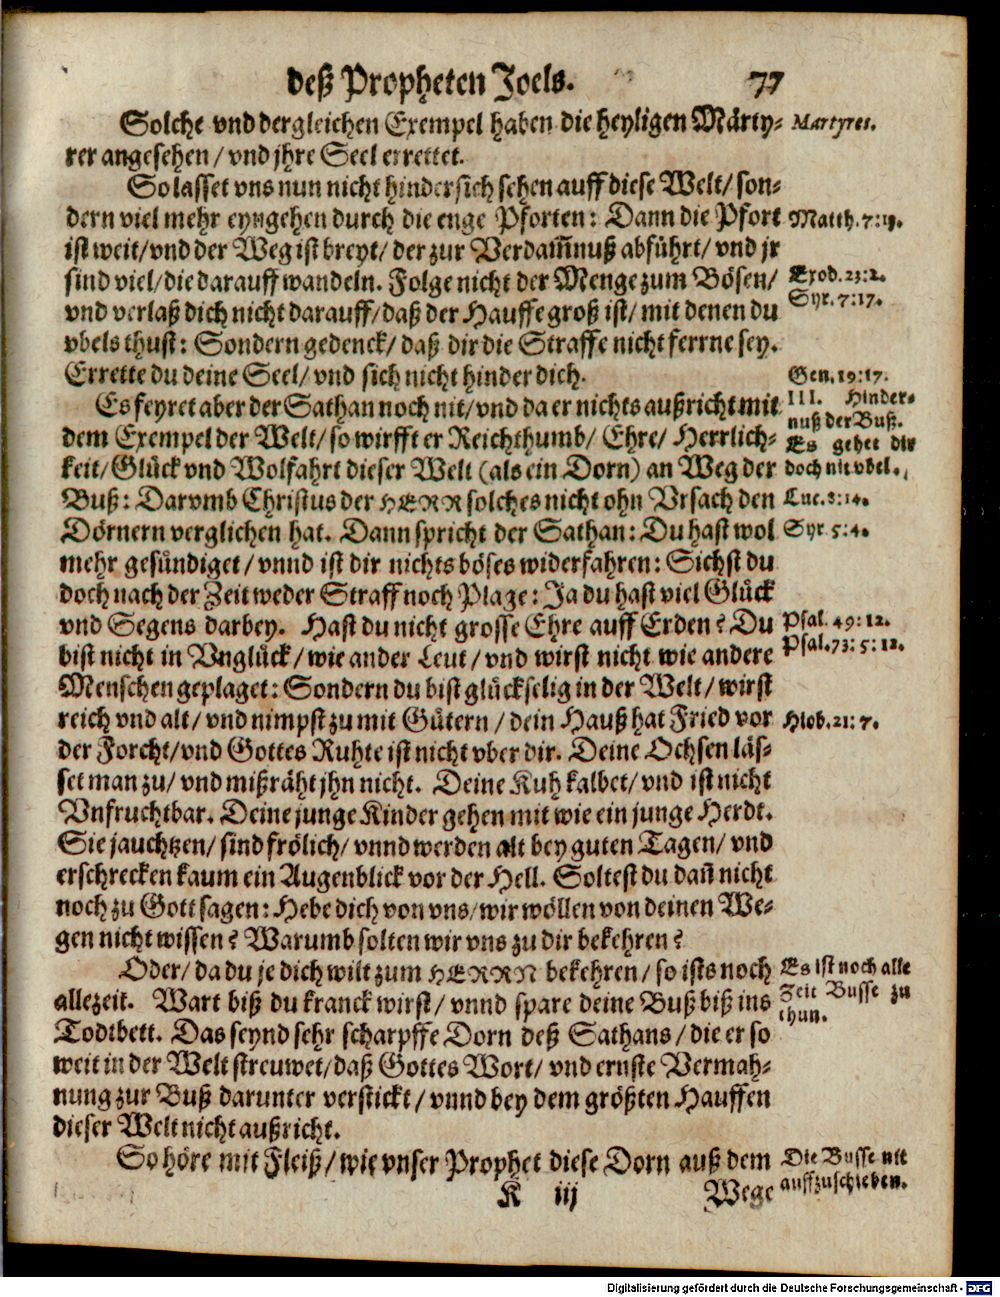 deß Propheten Joels. 77
Solche vnd dergleichen Exempel haben die heyligen Märty- Martyres.
rer angesehen / vnd jhre Seel errettet.
So lasset vns nun nicht hindersich sehen auff diese Welt / son-
dern viel mehr eyngehen durch die enge Pforten: Dann die Pfort Matth. 7:13.
ist weit / vnd der Weg ist breyt / der zur Verdam̃nuß abführt / vnd jr
sind viel / die darauff wandeln. Folge nicht der Menge zum Bösen / Exod. 23:2.
Syr. 7:17.
vnd verlaß dich nicht darauff / daß der Hauffe groß ist / mit denen du
vbels thust: Sondern gedenck / daß dir die Straffe nicht ferrne sey.
Errette du deine Seel / vnd sich nicht hinder dich. Gen. 19:17.
Es feyret aber der Sathan noch nit / vnd da er nichts außricht mit III. Hinder-
nuß der Buß.
dem Exempel der Welt / so wirfft er Reichthumb / Ehre / Herrlich- Es gehet dir
keit / Glück vnd Wolfahrt dieser Welt (als ein Dorn) an Weg der doch nit vbel.
Buß: Darvmb Christus der HERR solches nicht ohn Vrsach den Luc. 8:14.
Dörnern verglichen hat. Dann spricht der Sathan: Du hast wol Syr. 5:4.
mehr gesündiget / vnnd ist dir nichts böses widerfahren: Sichst du
doch nach der Zeit weder Straff noch Plage: Ja du hast viel Glück
vnd Segens darbey. Hast du nicht grosse Ehre auff Erden? Du Psal. 49:12.
bist nicht in Vnglück / wie ander Leut / vnd wirst nicht wie andere Psal. 73:5:12.
Menschen geplaget: Sondern du bist glückselig in der Welt / wirst
reich vnd alt / vnd nimpst zu mit Gütern / dein Hauß hat Fried vor Hiob. 21:7.
der Forcht / vnd Gottes Ruhte ist nicht vber dir. Deine Ochsen läs-
set man zu / vnd mißräht jhn nicht. Deine Kuh kalbet / vnd ist nicht
Vnfruchtbar. Deine junge Kinder gehen mit wie ein junge Herdt.
Sie jauchtzen / sind frölich / vnnd werden alt bey guten Tagen / vnd
erschrecken kaum ein Augenblick vor der Hell. Soltest du dañ nicht
noch zu Gott sagen: Hebe dich von vns / wir wöllen von deinen We-
gen nicht wissen? Warumb solten wir vns zu dir bekehren?
Oder / da du je dich wilt zum HERRN bekehren / so ists noch Es ist noch alle
allezeit. Wart biß du kranck wirst / vnnd spare deine Buß biß ins Zeit Busse zu
thun.
Todtbett. Das seynd sehr scharpffe Dorn deß Sathans / die er so
weit in der Welt streuwet / daß Gottes Wort / vnd ernste Vermah-
nung zur Buß darunter verstickt / vnnd bey dem größten Hauffen
dieser Welt nicht außricht.
So höre mit Fleiß / wie vnser Prophet diese Dorn auß dem Die Busse nit
auffzuschieben.
K iij Wege
Digitalisierung gefördert durch die Deutsche Forschungsgemeinschaft - DFG